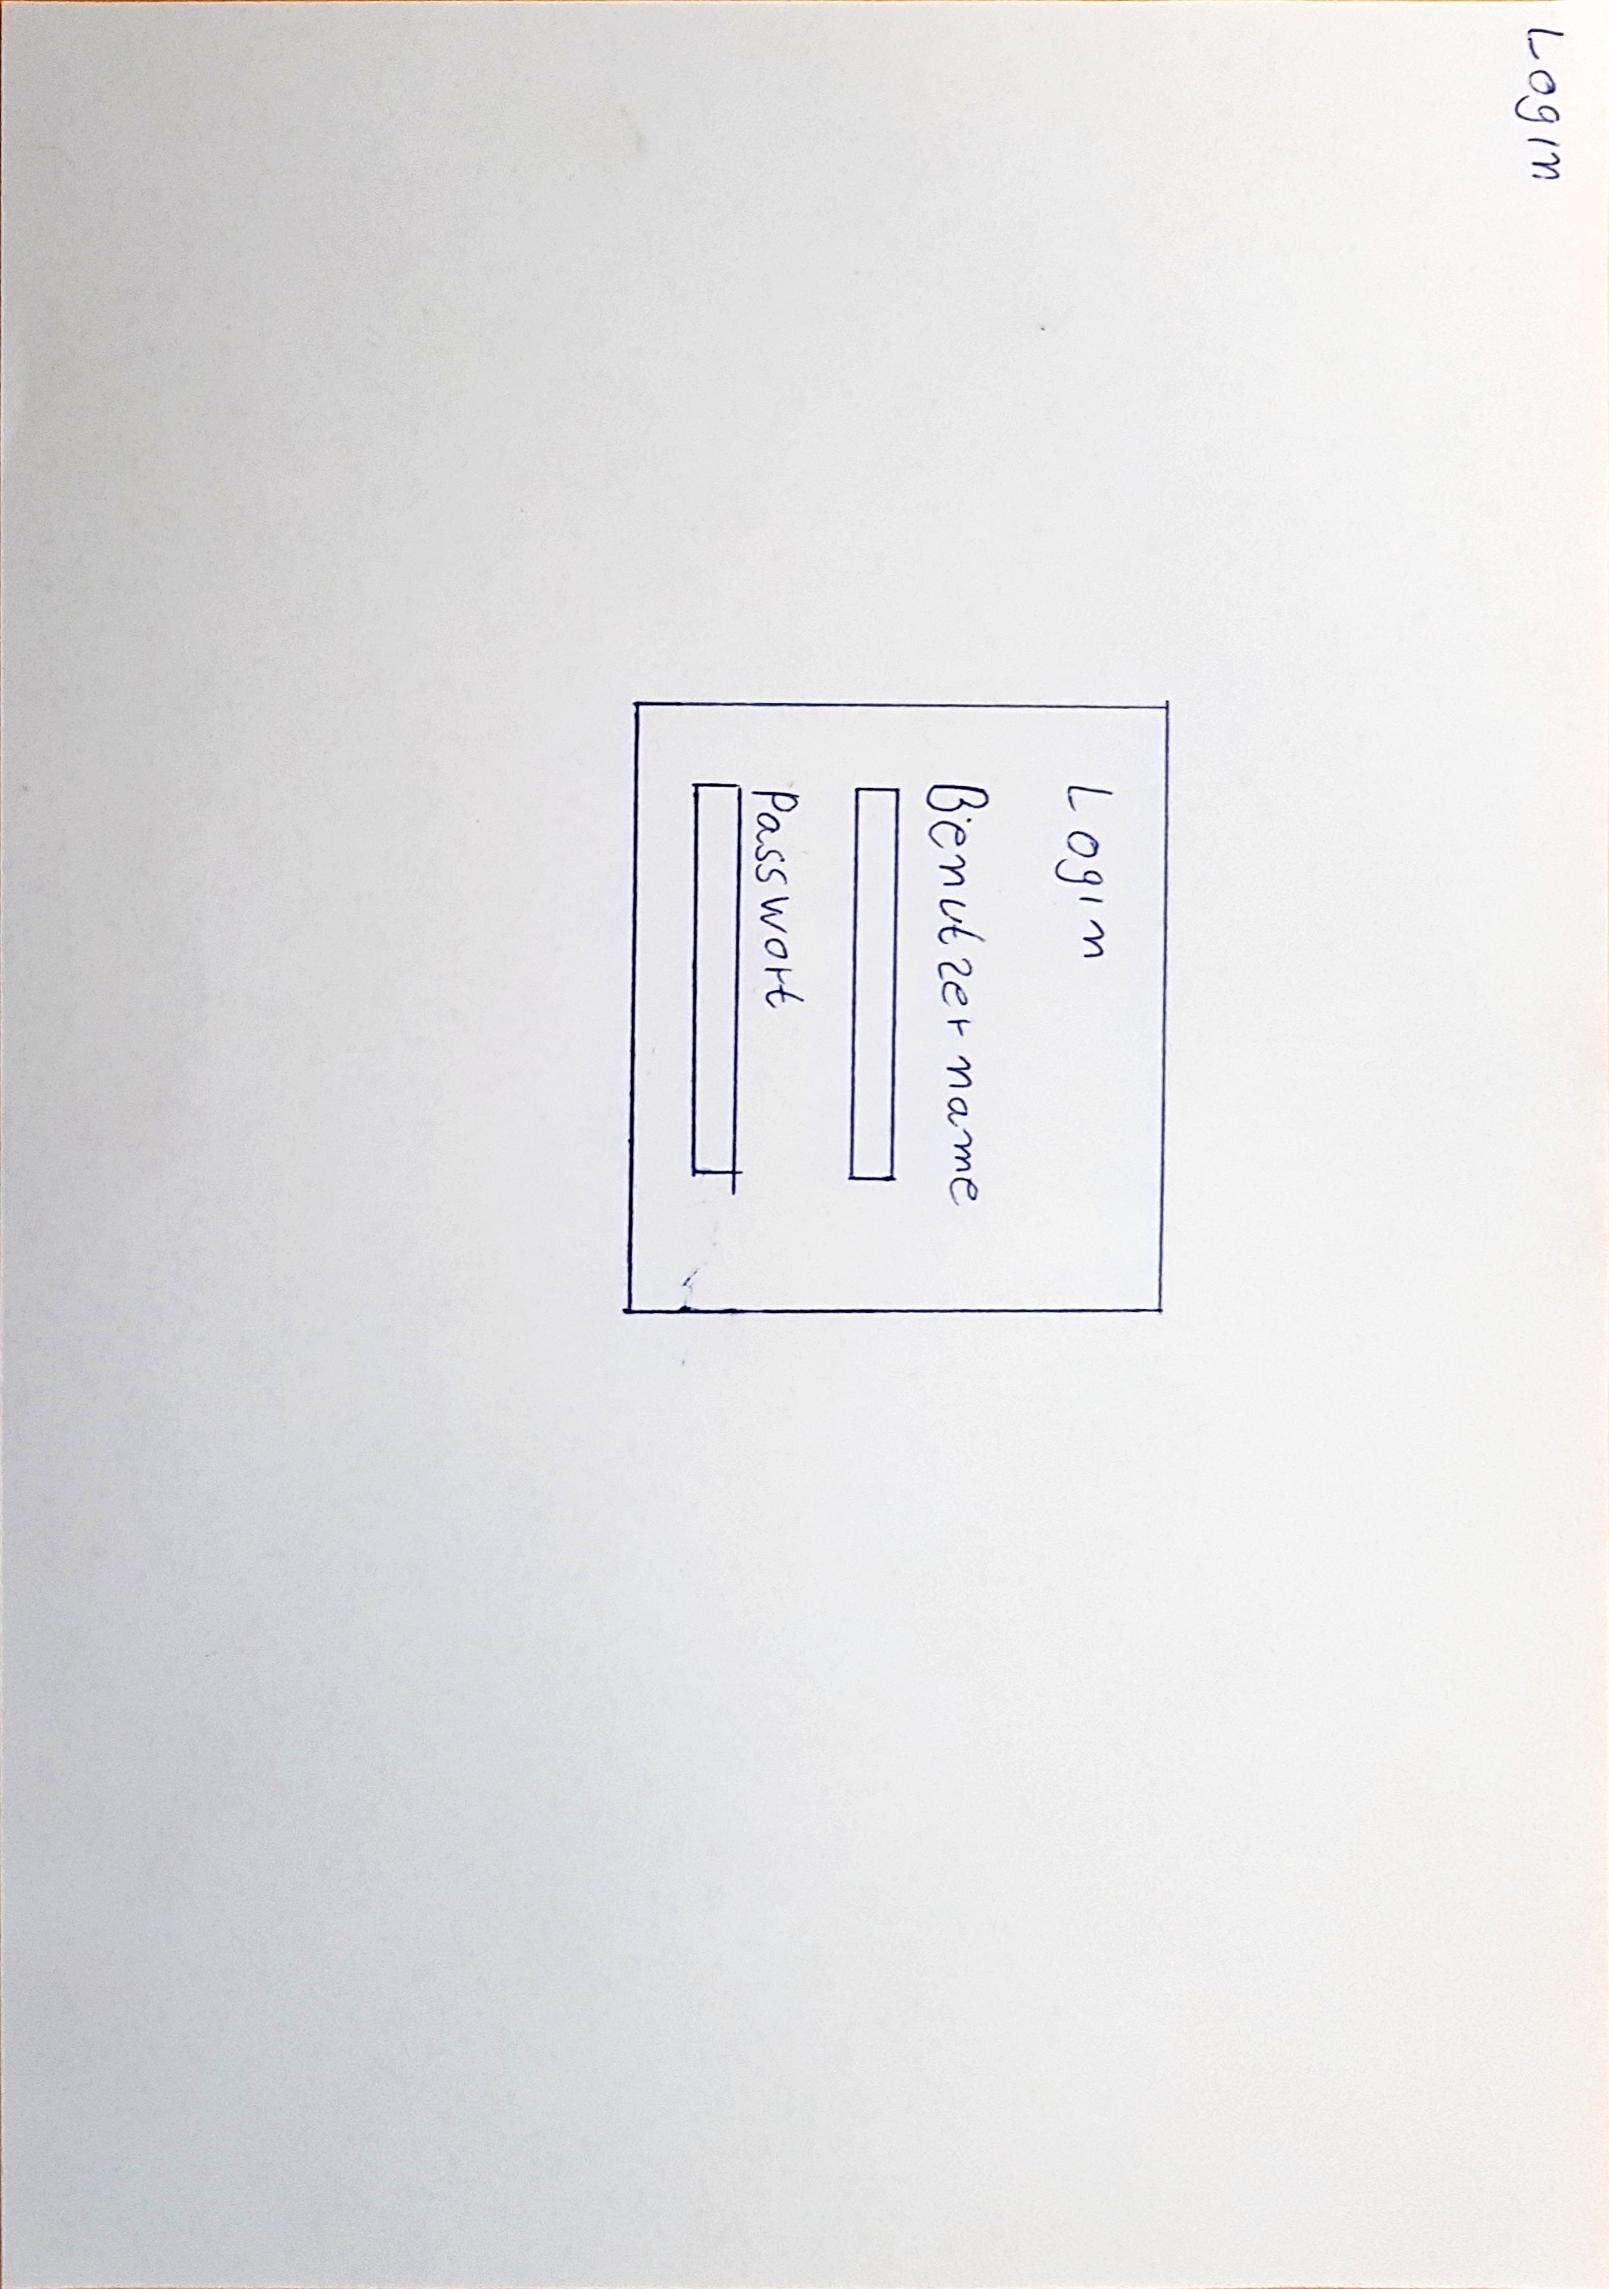 Login
Login
Benutzername
Passwort